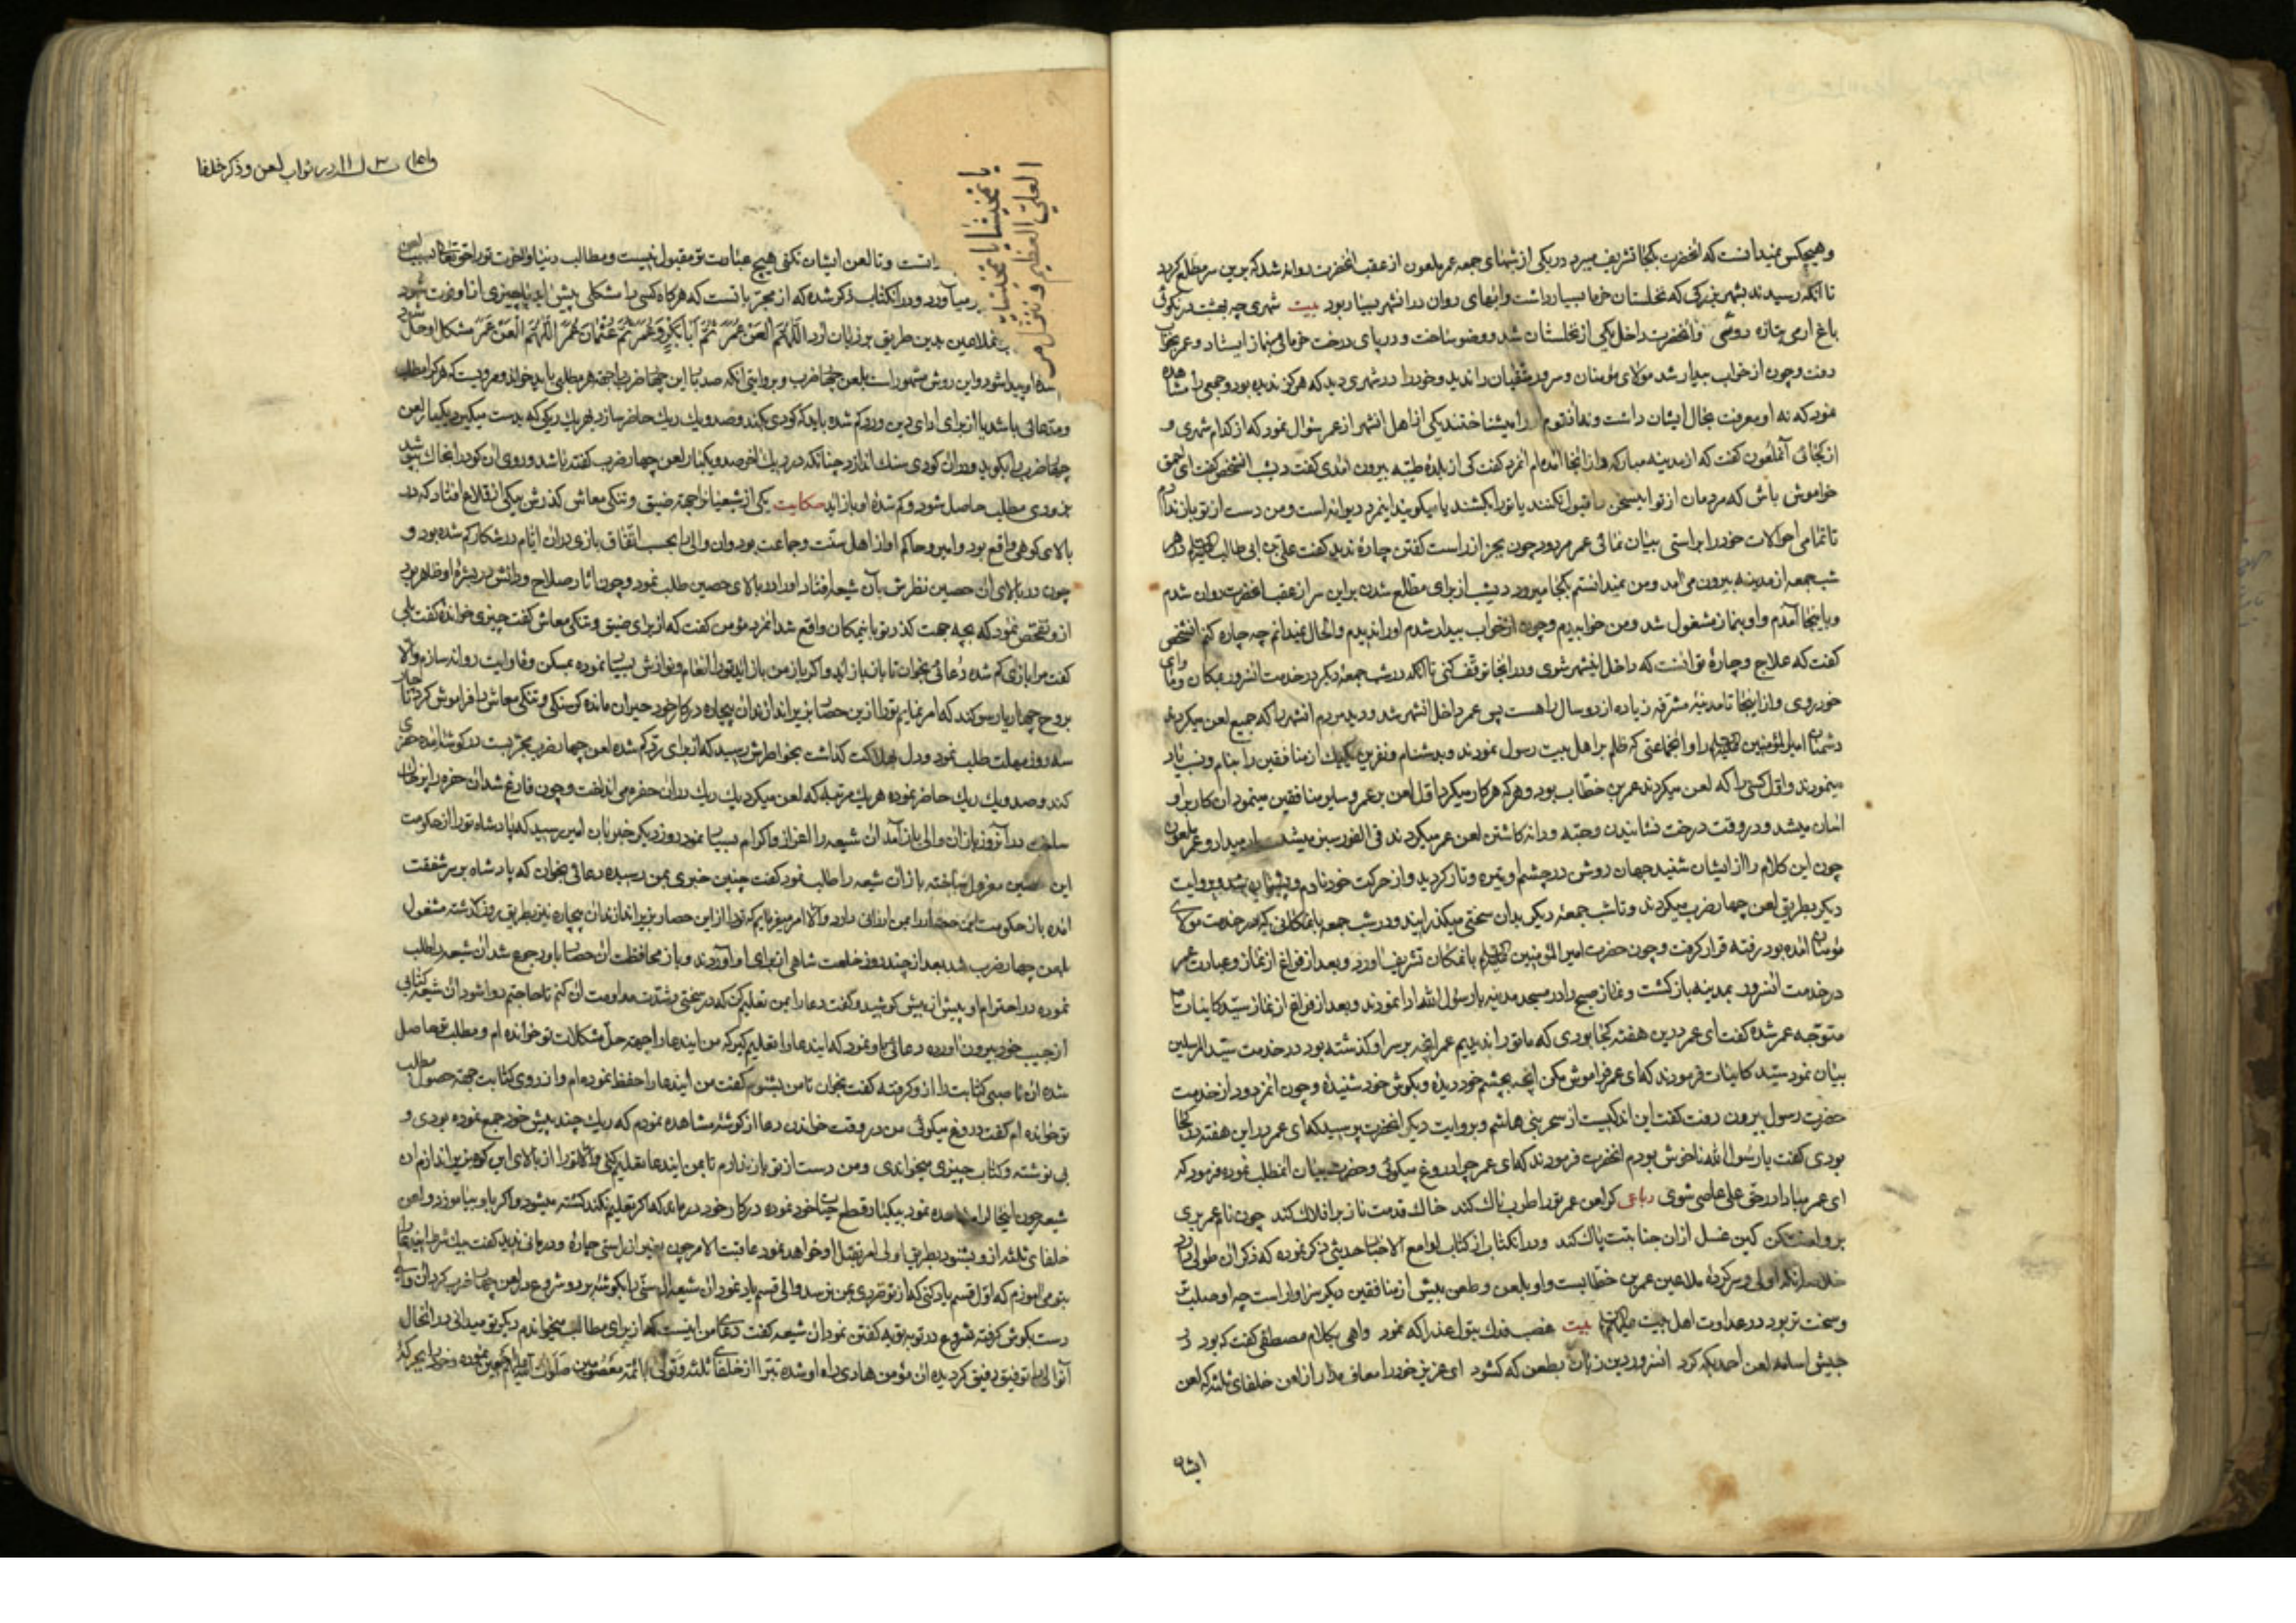 وهیچکس نمیدانست که آنحضرت بکجا تشریف میبرد در یکی از شبهای جمعه عمر ملعون از عقب آنحضرت روانه شد که برین سر مطلع کردد
تا آنکه رسیدند بشهر بزرکی که نخلستان خرما بسیار داشت وابهای روان در انشهر بسیار بود بیت شهری چه بهشت در نکوئی
باغ ارمی بتازه روئی وآنحضرت داخل یکی از نخلستان شد ووضو ساخت و در پای درخت خرمائی بنماز ایستاد و عمر بخواب
رفت وچون از خواب بیدار شد مولای مؤمنان وسرور متقیان را ندید وخود را در شهری دید که هرکز ندیده بود وجمعی را مشاهده
نمود که نه او معرفت بحال ایشان داشت ونه انقوم او را میشناختند یکی از اهل انشهر از عمر سؤال نمود که از کدام شهری و
از کجائی آنملعون کفت که از مدینه مبارکه واز انجا آمده‌ام انمرد کفت کی از بلده طیبه بیرون امدی کفت دیشب انشخص کفت ای احمق
خواموش باش که مردمان از تو اینسخن را قبول نکنند یا تو را بکشند یا میکویند اینمرد دیوانه است ومن دست از تو باز ندارم
تا تمامی احوالات خود را براستی بیان نمائی عمر مردود چون بجز از راست کفتن چاره ندید کفت علی بن ابی طالب هر
شب جمعه از مدینه بیرون می آمد ومن نمیدانستم بکجا میرود دیشب از برای مطلع شدن براین سر از عقب آنحضرت روان شدم
وباینجا آمدم واو بنماز مشغول شد ومن خوابیدم وچون از خواب بیدار شدم او را ندیدم والحال نمیدانم چه چاره کنم انشخص
کفت که علاج وچاره تو انست که داخل اینشهر شوی ودر انجا توقف کنی تا آنکه در شب جمعه دیکر در خدمت انسرور بمکان وماوای
خود روی واز اینجا تا مدینه مشرفه زیاده از دو سال راهست پس عمر داخل انشهر شد ودید مردم انشهر را که جمیع لعن میکردند
دشمنان امیر المؤمنین را وانجماعتی که ظلم بر اهل بیت رسول نمودند وبدشنام ونفرین یکیک از منافقین را بنام ونسب یاد
مینمودند واول کسی را که لعن میکردند عمر بن خطاب بود وهر که هر کار میکرد اول لعن بر عمر وسایر منافقین مینمود ان کار بر او
اسان میشد ودر وقت درخت نشانیدن وحبه ودانه کاشتن لعن عمر میکردند فی الفور سبز میشد وعمر ملعون
چون این کلام را از ایشان شنید جهان روشن در چشم او تیره وتار کردید واز حرکت خود نادم وپشیمان شد وبروایت
دیکر بطریق لعن چهار ضرب میکردند وتا شب جمعه دیکر بدان سختی میکذرانید ودر شب جمعه بانمکانی که در خدمت مولای
مؤمنان امده بود رفته قرار کرفت وچون حضرت امیر المؤمنین بانمکان تشریف اورد وبعد از فراغ از نماز وعبادت عمر
در خدمت انسرور بمدینه باز کشت ونماز صبح را در مسجد مدینه با رسول الله ادا نمودند وبعد از فراغ از نماز سید کاینات
متوجه عمر شده کفت ای عمر درین هفته کجا بودی که ما تو را ندیدیم عمر انچه بر سر او کذشته بود در خدمت سید المرسلین
بیان نمود سید کاینات فرمودند که ای عمر فراموش مکن انچه بچشم خود دیده وبکوش خود شنیده وچون انمردود از خدمت
حضرت رسول بیرون رفت کفت این اندکیست از سحر بنی هاشم وبروایت دیکر انحضرت پرسید که ای عمر در این هفته در کجا
بودی کفت یا رسول الله ناخوش بودم انحضرت فرمودند که ای عمر چرا دروغ میکوئی وحضرت بیان انمطلب نموده فرمود که
ای عمر مبادا در حق علی عاصی شوی رباعی کر لعن عمر تو را طرب ناک کند خاک قدمت ناز بر افلاک کند چون نام عمر بری
کین غسل از ان جنابتت پاک کند ودر انکتاب از کتاب لوامع الاخبار حدیثی ذکر نموده که ذکر ان طولی دارد
خلاصه انکه اولی وسر کرده ملاعین عمر بن خطابست واو بلعن وطعن بیش از منافقین دیکر سزاوار است چه او صلب تر
وسخت تر بود در عداوت اهل بیت بیت غصب فدک بتول عذرا که نمود واهی بکلام مصطفی کفت که بود در
جیش اسامه لعن احمد بکه کرد انسرور دین زبان بطعن که کشود ای عزیز خود را معاف مدار از لعن خلفای ثلثه که لعن
ایشان
در ثواب لعن وذکر خلفا
یا بخیتنا یا بخیتنا
العلی العظیم و
وتا لعن ایشان نکنی هیچ عبادت تو مقبول نیست ومطالب دنیا واخرت تو را حق تعالی بسبب لعن
میآورد ودر انکتاب ذکر شده که از مجرباتست که هرکاه کسی را مشکلی پیش اید یا چیزی از او فوت شود
بدین طریق بر زبان آرد اللهم العن عمر ثم ابابکر وعمر ثم عثمان وعمر اللهم العن عمر مشکل او حل شود
پیدا شود واین روش مشهور است بلعن چهار ضرب وبروایتی آنکه صد بار این چهار ضرب را بجهة هر مطلبی باید خواند ومرویست که هر کرا مطلب
ومدعائی باشد یا از برای ادای دین ورد کم شده باید که کودی بکند وصد ویک ریک حاضر سازد وهر یک ریکی که بدست میکیرد یکبار لعن
چهار ضرب را بکوید ودر ان کودی سنک اندازد چنانکه در ریک آخر صد ویکبار لعن چهار ضرب کفته باشد وروی ان کود را بخاک بپوشد
بزودی مطلب حاصل شود وکم شده او باز آید حکایت یکی از شیعیان از جهة ضیق وتنکی معاش کذرش بیکی از قلاع افتاد که در
بالای کوهی واقع بود وامیر وحاکم او از اهل سنت وجماعت بود وان والی را بحسب اتفاق بازی در ان ایام در شکار کم شده بود و
چون در بالای ان حصین نظرش بآن شیعه افتاد او را در بالای حصین طلب نمود وچون اثار صلاح ودانش در بشره او ظاهر بود
از و تفحص نمود که بچه جهت کذر تو باینمکان واقع شد انمرد مؤمن کفت که از برای ضیق وتنکی معاش کفت چیزی خوانده کفت بلی
کفت مرا بازی کم شده دعائی بخوان تا باز باز اید واکر باز من باز اید تو را انعام ونوازش بسیار نموده بمسکن وماوایت روانه سازم والا
بروح چهار یار سوکند که امر نمایم تو را از ین حصار بزیر اندازند ان بیچاره در کار خود حیران مانده کرسنکی وتنکی معاش را فراموش کرد
سه روز مهلت طلب نمود بخواطرش رسید که از برای رد کم شده لعن چهار ضرب مجربست در کوشه امده حفری
کند وصد ویک ریک حاضر نموده هر یک مرتبه که لعن میکرد یک ریک در ان حفره می انداخت وچون فارغ شد ان حفره را پر خاک
ساخت در آنروز باز ان والی باز آمد ان شیعه را اعزاز واکرام بسیار نمود روز دیکر خبر بان امیر رسید که پادشاه تو را از حکومت
این حصین معزول ساخته باز ان شیعه را طلب نمود کفت چنین خبری بمن رسیده دعائی بخوان که پادشاه بر سر شفقت
امده باز حکومت این حصار را بمن ارزانی دارد والا امر میفرمایم که تو را از این حصار بزیر اندازند ان بیچاره نیز بطریق روز کذشته مشغول
لعن چهار ضرب شد بعد از چند روز خلعت شاهی از برای او آوردند وباز محافظت ان حصار باو رجوع شد ان شیعه را طلب
نموده در احترام او بیش از پیش کوشید وکفت دعا را بمن تعلیم کن که در سختی وشدت مداومت ان کنم تا حاجتم روا شود ان شیعه کتابی
از جیب خود بیرون آورده دعائی باو نمود که ایندعا را تعلیم کیر که من ایندعا را جهة حل مشکلات تو خوانده ام ومطلب تو حاصل
شده ان ناصبی کتابت را از و کرفته کفت بخوان تا من بشنوم کفت من ایندعا را حفظ نموده ام واز روی کتابت جهة حصول مطلب
تو خوانده ام کفت دروغ میکوئی من در وقت خواندن دعا از کوشه مشاهده نمودم که ریک چند پیش خود جمع نموده بودی و
بی نوشته وکتاب چیزی میخواندی ومن دست از تو باز ندارم تا بمن ایندعا تعلیم کنی والا تو را از بالای این کوه بزیر اندازم ان
شیعه چون اینحال را مشاهده نمود بیکبار قطع حیات خود نموده در کار خود در ماند که اکر تعلیم نکند کشته میشود واکر باو بیاموزد ولعن
خلفای ثلثه از و بشنود بطریق اولی امر بقتل او خواهد نمود عاقبت الامر چون بغیر از راستی چاره ودرمانی ندید کفت بیک شرط ایندعا را
بتو می اموزم که اول قسم یاد کنی که از تو ضرری بمن نرسد والی قسم یاد نمود ان شیعه ان سنی را بکوشه برد وشروع در لعن چهار ضرب کرد ان والی
دست بکوش کرفته شروع در توبه توبه کفتن نمود ان شیعه کفت دعای من اینست که از برای مطالب میخواندم دیکر تو میدانی در انحال
آنوالی را توفیق رفیق کردیده ان مؤمن هادی راه او شده تبرا از خلفای ثلثه وتولی بائمه معصومین صلوات الله علیهم اجمعین نموده